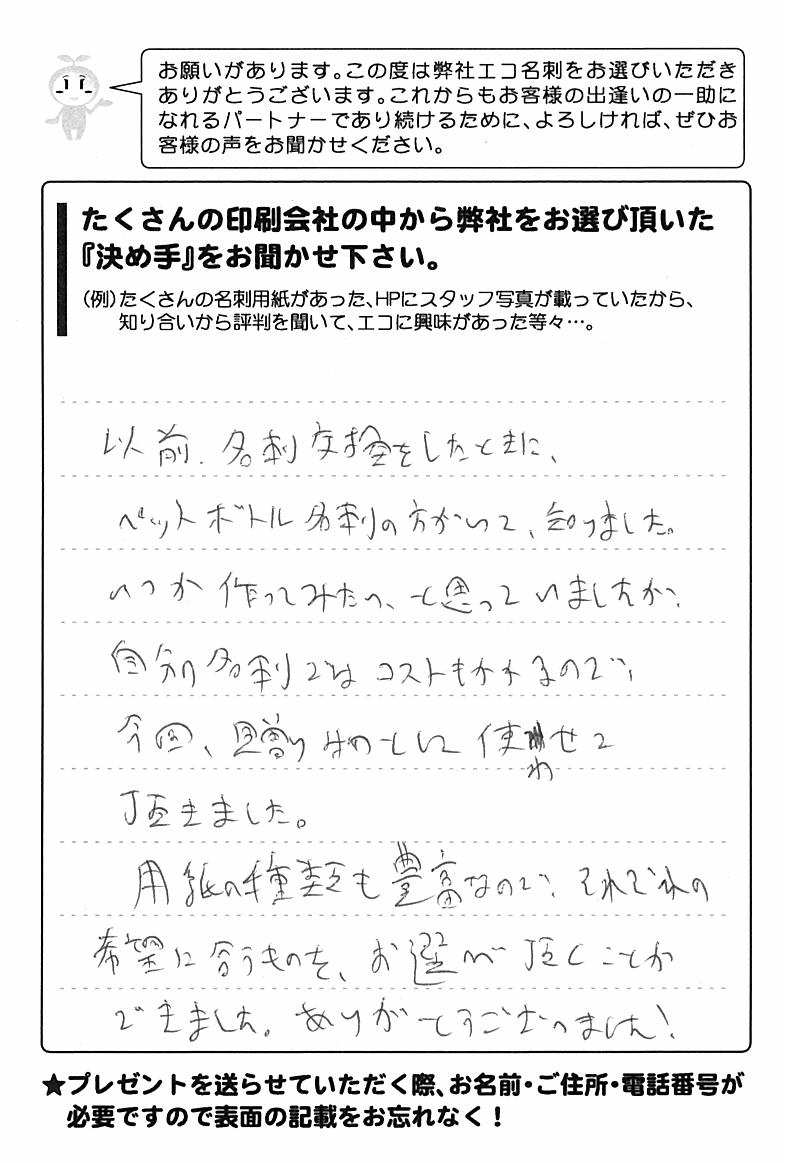 お願いがあります。この度は弊社エコ名刺をお選びいただき
ありがとうございます。これからもお客様の出逢いの一助に
なれるパートナーであり続けるために、よろしければ、ぜひお
客様の声をお聞かせください。
たくさんの印刷会社の中から弊社をお選び頂いた
『決め手』をお聞かせ下さい。
(例)たくさんの名刺用紙があった、HPにスタッフ写真が載っていたから、
知り合いから評判を聞いて、エコに興味があった等々…。
以前、名刺交換をしたときに、
ペットボトル名刺の方がいて、知りました。
いつか作ってみたい、と思っていましたが、
自分名刺ではコストもかかるので、
今回、贈り物として使わせて
頂きました。
用紙の種類も豊富なので、それぞれの
希望に合うものを、お選び頂くことが
できました。ありがとうございました!
★プレゼントを送らせていただく際、お名前・ご住所・電話番号が
必要ですので表面の記載をお忘れなく!